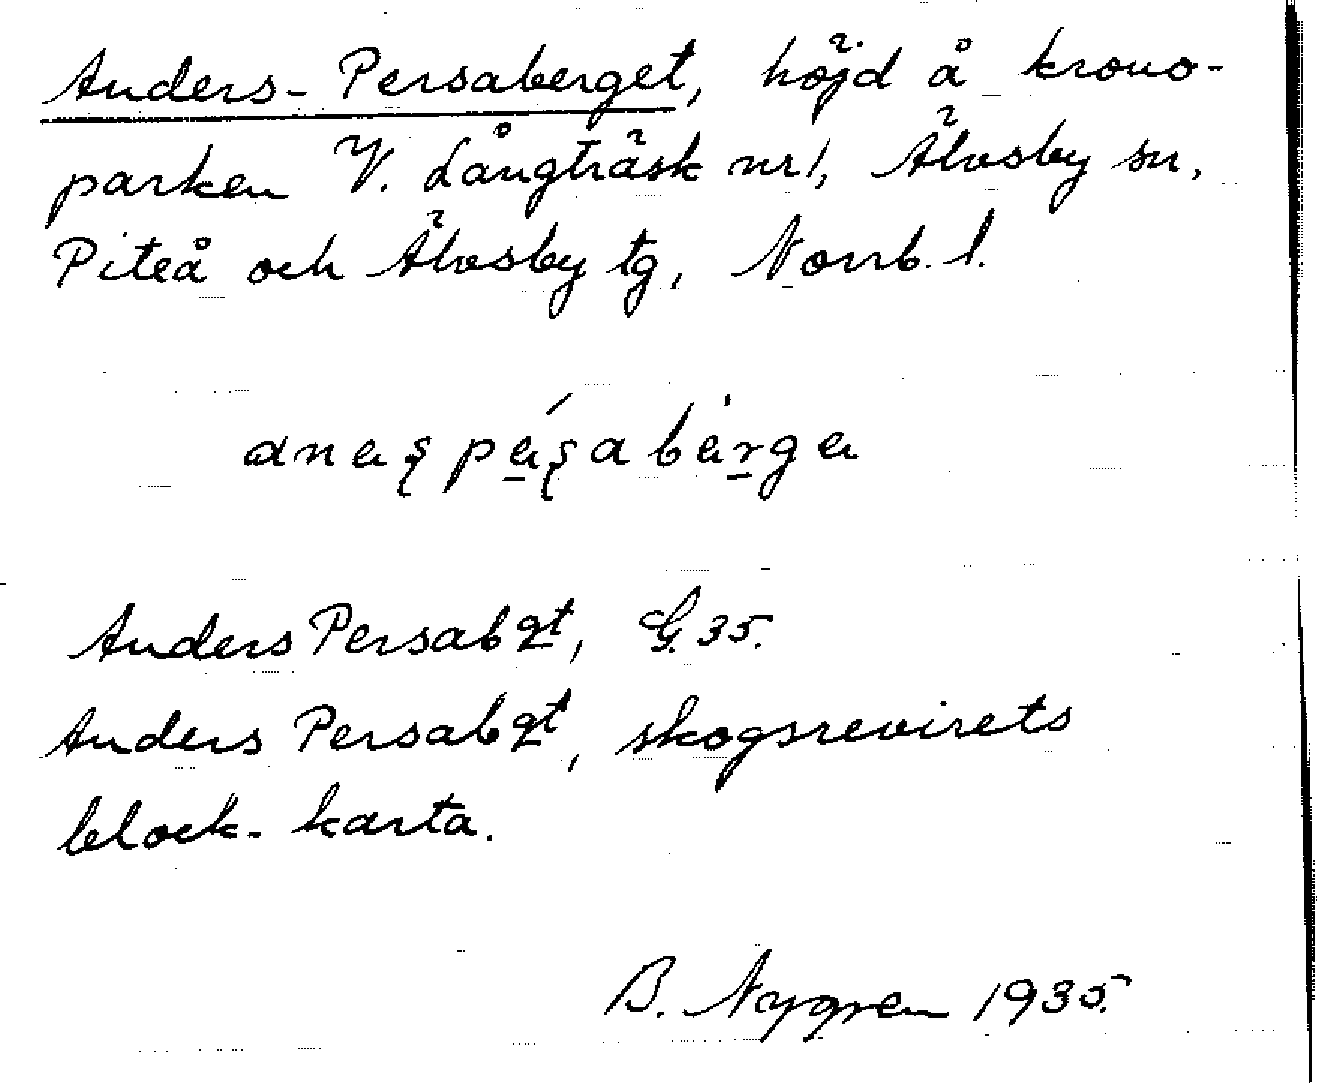 Anders-Persaberget, höjd å krono-
parken V. Långträsk nr 1, Älvsby sn,
Piteå och Älvsby tg, Norrb. l.
Anders Persabgt, G. 35.
Anders Persabgt, skogsrevirets
block-karta.
B. Nygren 1935.